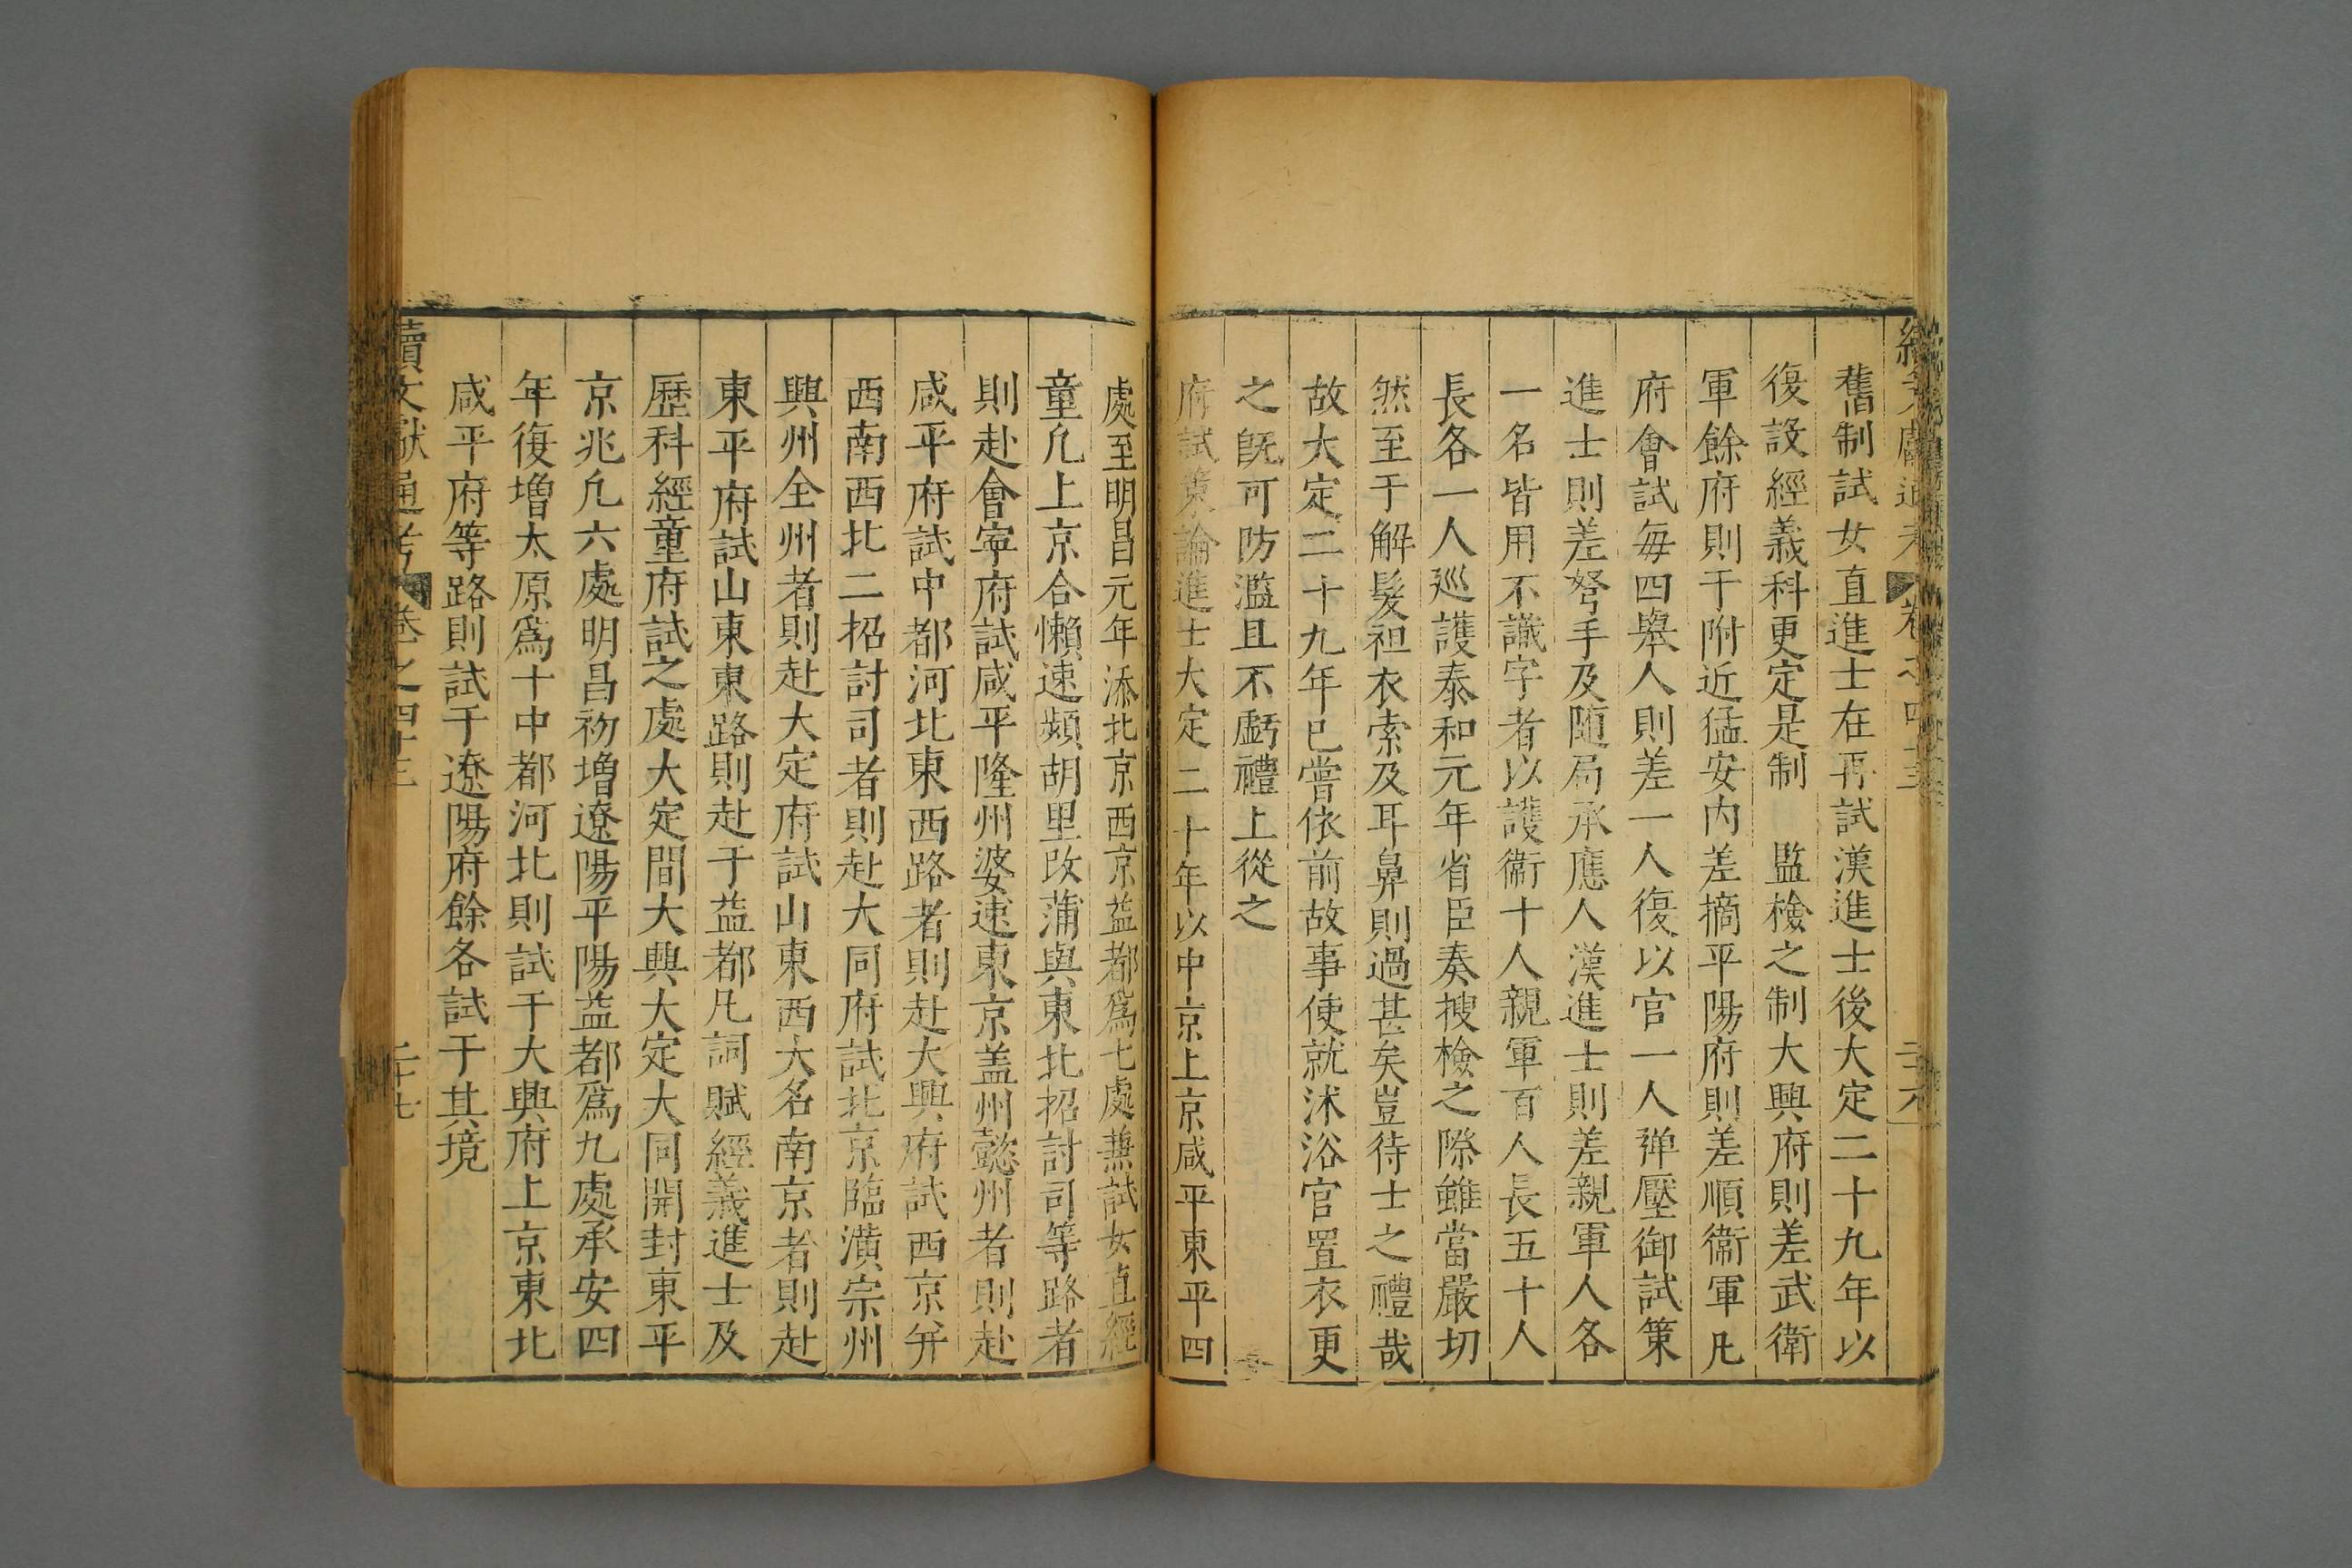 舊制試女直進士在再試漢進士後大定二十九年以
復設經義科更定是制　監檢之制大興府則差武衛
軍餘府則于附近猛安内差摘平陽府則差順衛軍凡
府會試每四舉人則差一人復以官一人彈壓御試策
進士則差弩手及随局承應人漢進士則差親軍人各
一名皆用不識字者以護衛十人親軍百人長五十人
長各一人巡護泰和元年省臣奏搜檢之際雖當嚴切
然至于解髮袒衣索及耳鼻則過甚矣豈待士之禮哉
故大定二十九年已嘗依前故事使就沐浴官置衣更
之既可防濫且不虧禮上從之
府試策論進士大定二十年以中京上京咸平東平四
處至明昌元年添北京西京益都爲七處兼試女直經
童凡上京合懶速頻胡里改蒲與東北招討司等路者
則赴會寧府試咸平隆州婆速東京盖州懿州者則赴
咸平府試中都河北東西路者則赴大興府試西京并
西南西北二招討司者則赴大同府試北京臨潢宗州
興州全州者則赴大定府試山東西大名南京者則赴
東平府試山東東路則赴于益都凡詞賦經義進士及
歷科經童府試之處大定間大興大定大同開封東平
京兆凡六處明昌初增遼陽平陽益都爲九處承安四
年復增太原爲十中都河北則試于大興府上京東北
咸平府等路則試于遼陽府餘各試于其境
續文獻通考　卷之四十三　二十七